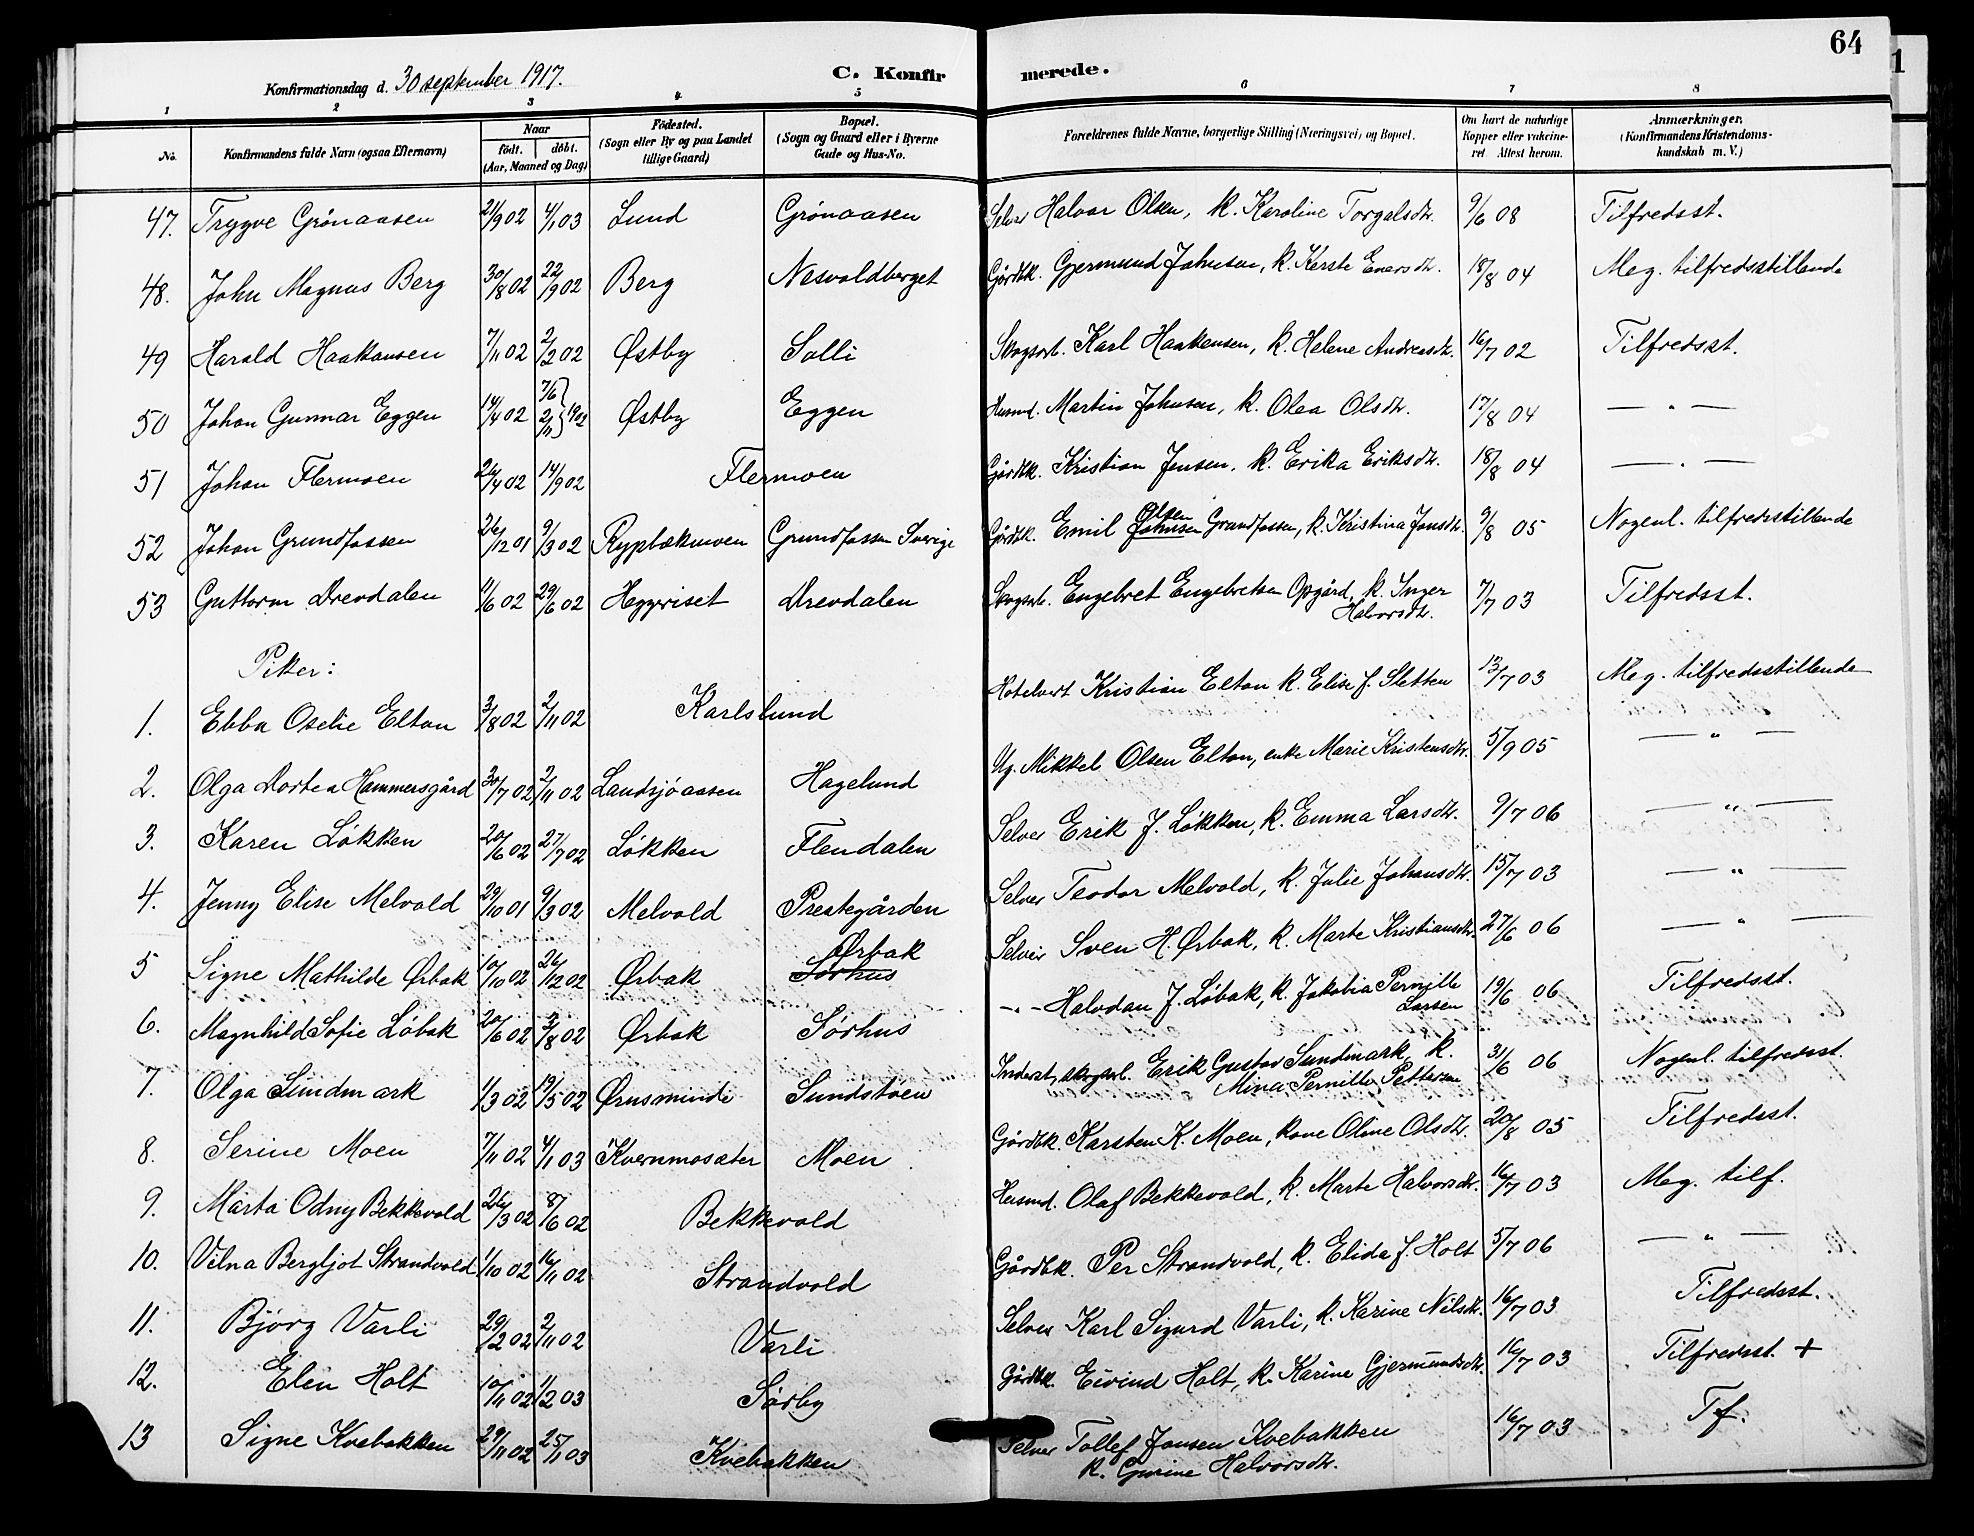 64
1
Konfirmationsdag d. 30 september 1917.
C. Konfirmerede.
1 2 3 4 5 6 7 8
No.
Konfirmandens fulde Navn (ogsaa Efternavn)
Naar
født. døbt.
(Aar, Maaned og Dag)
Fødested.
(Sogn eller By og paa Landet
tillige Gaard)
Bopæl.
(Sogn og Gaard eller i Byerne
Gade og Hus-No.
Forældrenes fulde Navne, borgerlige Stilling (Næringsvei) og Bopæl.
Om havt de naturlige
Kopper eller vaksine-
ret Attest herom.
Anmærkninger.
(Konfirmandens Kristendoms-
kundskab m. V.)
47. Trygve Grönaasen 21/9 02 4/1 03 Lund Grönaasen Selver Halvor Olsen, k. Karoline Torgalsdtr. 9/6 08 Tilfredsst.
48. John Magnus Berg 30/8 02 22/9 02 Berg Nesvoldberget Gårdbk. Gjermund Johnsen, k. Kerste Enersdtr. 18/8 04 Meg. tilfredsstillende
49 Harald Haakonsen 7/11 02 2/2 02 Østby Solli Skogsarb. Karl Haakensen, k. Helene Andreasdtr. 16/7 02 Tilfredsst.
50 Johan Gunnar Eggen 14/4 02 7/6 2/11 } 1902 Østby Eggen Husmd. Martin Johnsen, k. Olea Olsdtr. 17/8 04 — " —
51 Johan Flermoen 24/4 02 14/9 02 Flermoen Gårdbk. Kristian Jensen, k. Erika Eriksdtr. 18/8 04 — " —
52 Johan Grundfossen 26/12 01 9/3 02 Rypbækmoen Grundfossen Sverige Gårdbk. Emil Johnsen Olsen Grundfossen, k. Kristina Jonsdtr. 9/8 05 Nogenl. tilfredsstillende
53 Guttorm Drevdalen 11/6 02 29/6 02 Heggeriset Drevdalen Skogsarb. Engebret Engebretsen Opgård, k. Inger Halvorsdtr. 7/7 03 Tilfredsst.
Piker:
1. Ebba Oselie Elton 3/8 02 2/11 02 Karlslund Hotelvert Kristian Elton k. Elise f. Sletten 13/7 03 Meg. tilfredsstillende
2. Olga Dortea Hammersgård 30/7 02 2/11 02 Landsjöaasen Hagelund Ug. Mikkel Olsen Elton, enke Marie Kristensdtr. 5/9 05 — " —
3. Karen Løkken 20/6 02 27/7 02 Løkken Flendalen Selver Erik J. Løkken, k. Emma Larsdtr. 9/7 06 — " —
4. Jenny Elise Melvold 29/10 01 9/3 02 Melvold Prestegården Selver Teodor Melvold, k. Julie Johansdtr. 15/7 03 — " —
5 Signe Mathilde Ørbak 10/10 02 26/12 02 Ørbak Sørhus Ørbak Selveier Sven H. Ørbak, k. Marte Kristiansdtr. 27/6 06 — " —
6. Magnhild Sofie Løbak 20/6 02 3/8 02 Ørbak Sørhus — " — Halvdan J. Løbak, k. Jakobia Pernille Larsen 19/6 06 Tilfredsst.
7. Olga Sundmark 1/3 02 19/5 02 Ørnsminde Sundstøen Inderst, skogsarb. Erik Gustav Sundmark, k. Mina Pernille Pettersen 31/6 06 Nogenl. tilfredsst.
8. Serine Moen 7/11 02 4/1 03 Kvernmosæter Moen Gårdbk. Karsten K. Moen, kone Oline Olsdtr. 20/8 05 Tilfredsst.
9. Marta Odny Bekkevold 26/3 02 8/6 02 Bekkevold Husmd. Olaf Bekkevold, k. Marte Halvorsdtr. 16/7 03 Meg. tilf.
10. Vilna Bergljot Strandvold 1/10 02 16/11 02 Strandvold Gårdbk. Per Strandvold, k. Elida f. Holt 5/7 06 — " —
11. Bjørg Varli 29/2 02 2/11 02 Varli Selver Karl Sigurd Varli, k. Karine Nilsdtr. 16/7 03 Tilfredsst.
12. Elin Holt 10/11 02 1/2 03 Sørby Gårdbk. Eivind Holt, k. Karine Gjermundsdtr. 16/7 03 Tilfredsst. +
13 Signe Kvebakken 29/11 02 25/1 03 Kvebakken Selver Tollef Jonsen Kvebakken k. Gurine Halvorsdtr. 16/7 03 Tf.